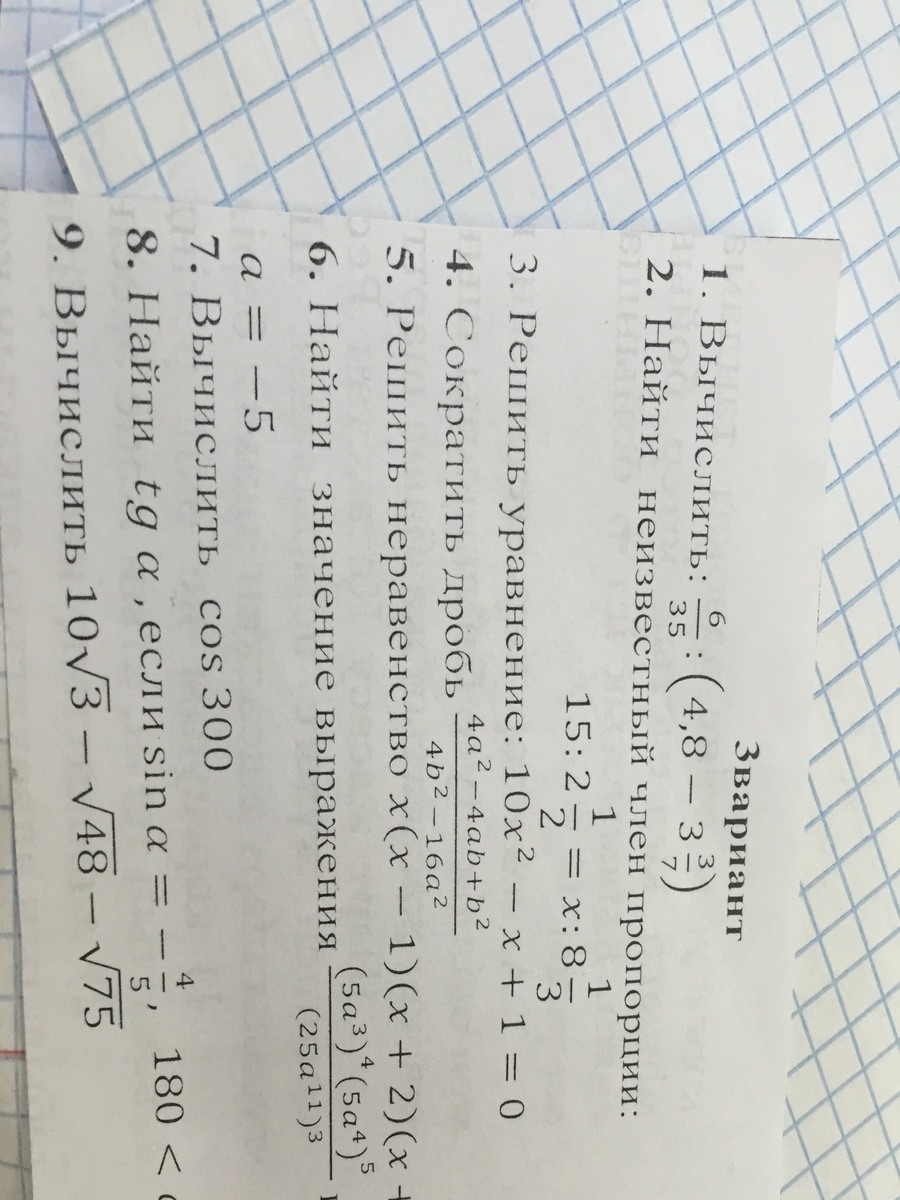 3вариант
1. Вычислить: 6/35 : (4,8 − 3 3/7)
2. Найти неизвестный член пропорции:
15: 2 1/2 = x: 8 1/3
3. Решить уравнение: 10x² − x + 1 = 0
4. Сократить дробь (4a²−4ab+b²)/(4b²−16a²)
5. Решить неравенство x(x − 1)(x + 2)(x +
6. Найти значение выражения (5a³)⁴(5a⁴)⁵/(25a¹¹)³
a = −5
7. Вычислить cos 300
8. Найти tg α , если sin α = − 4/5, 180 <
9. Вычислить 10√3 − √48 − √75